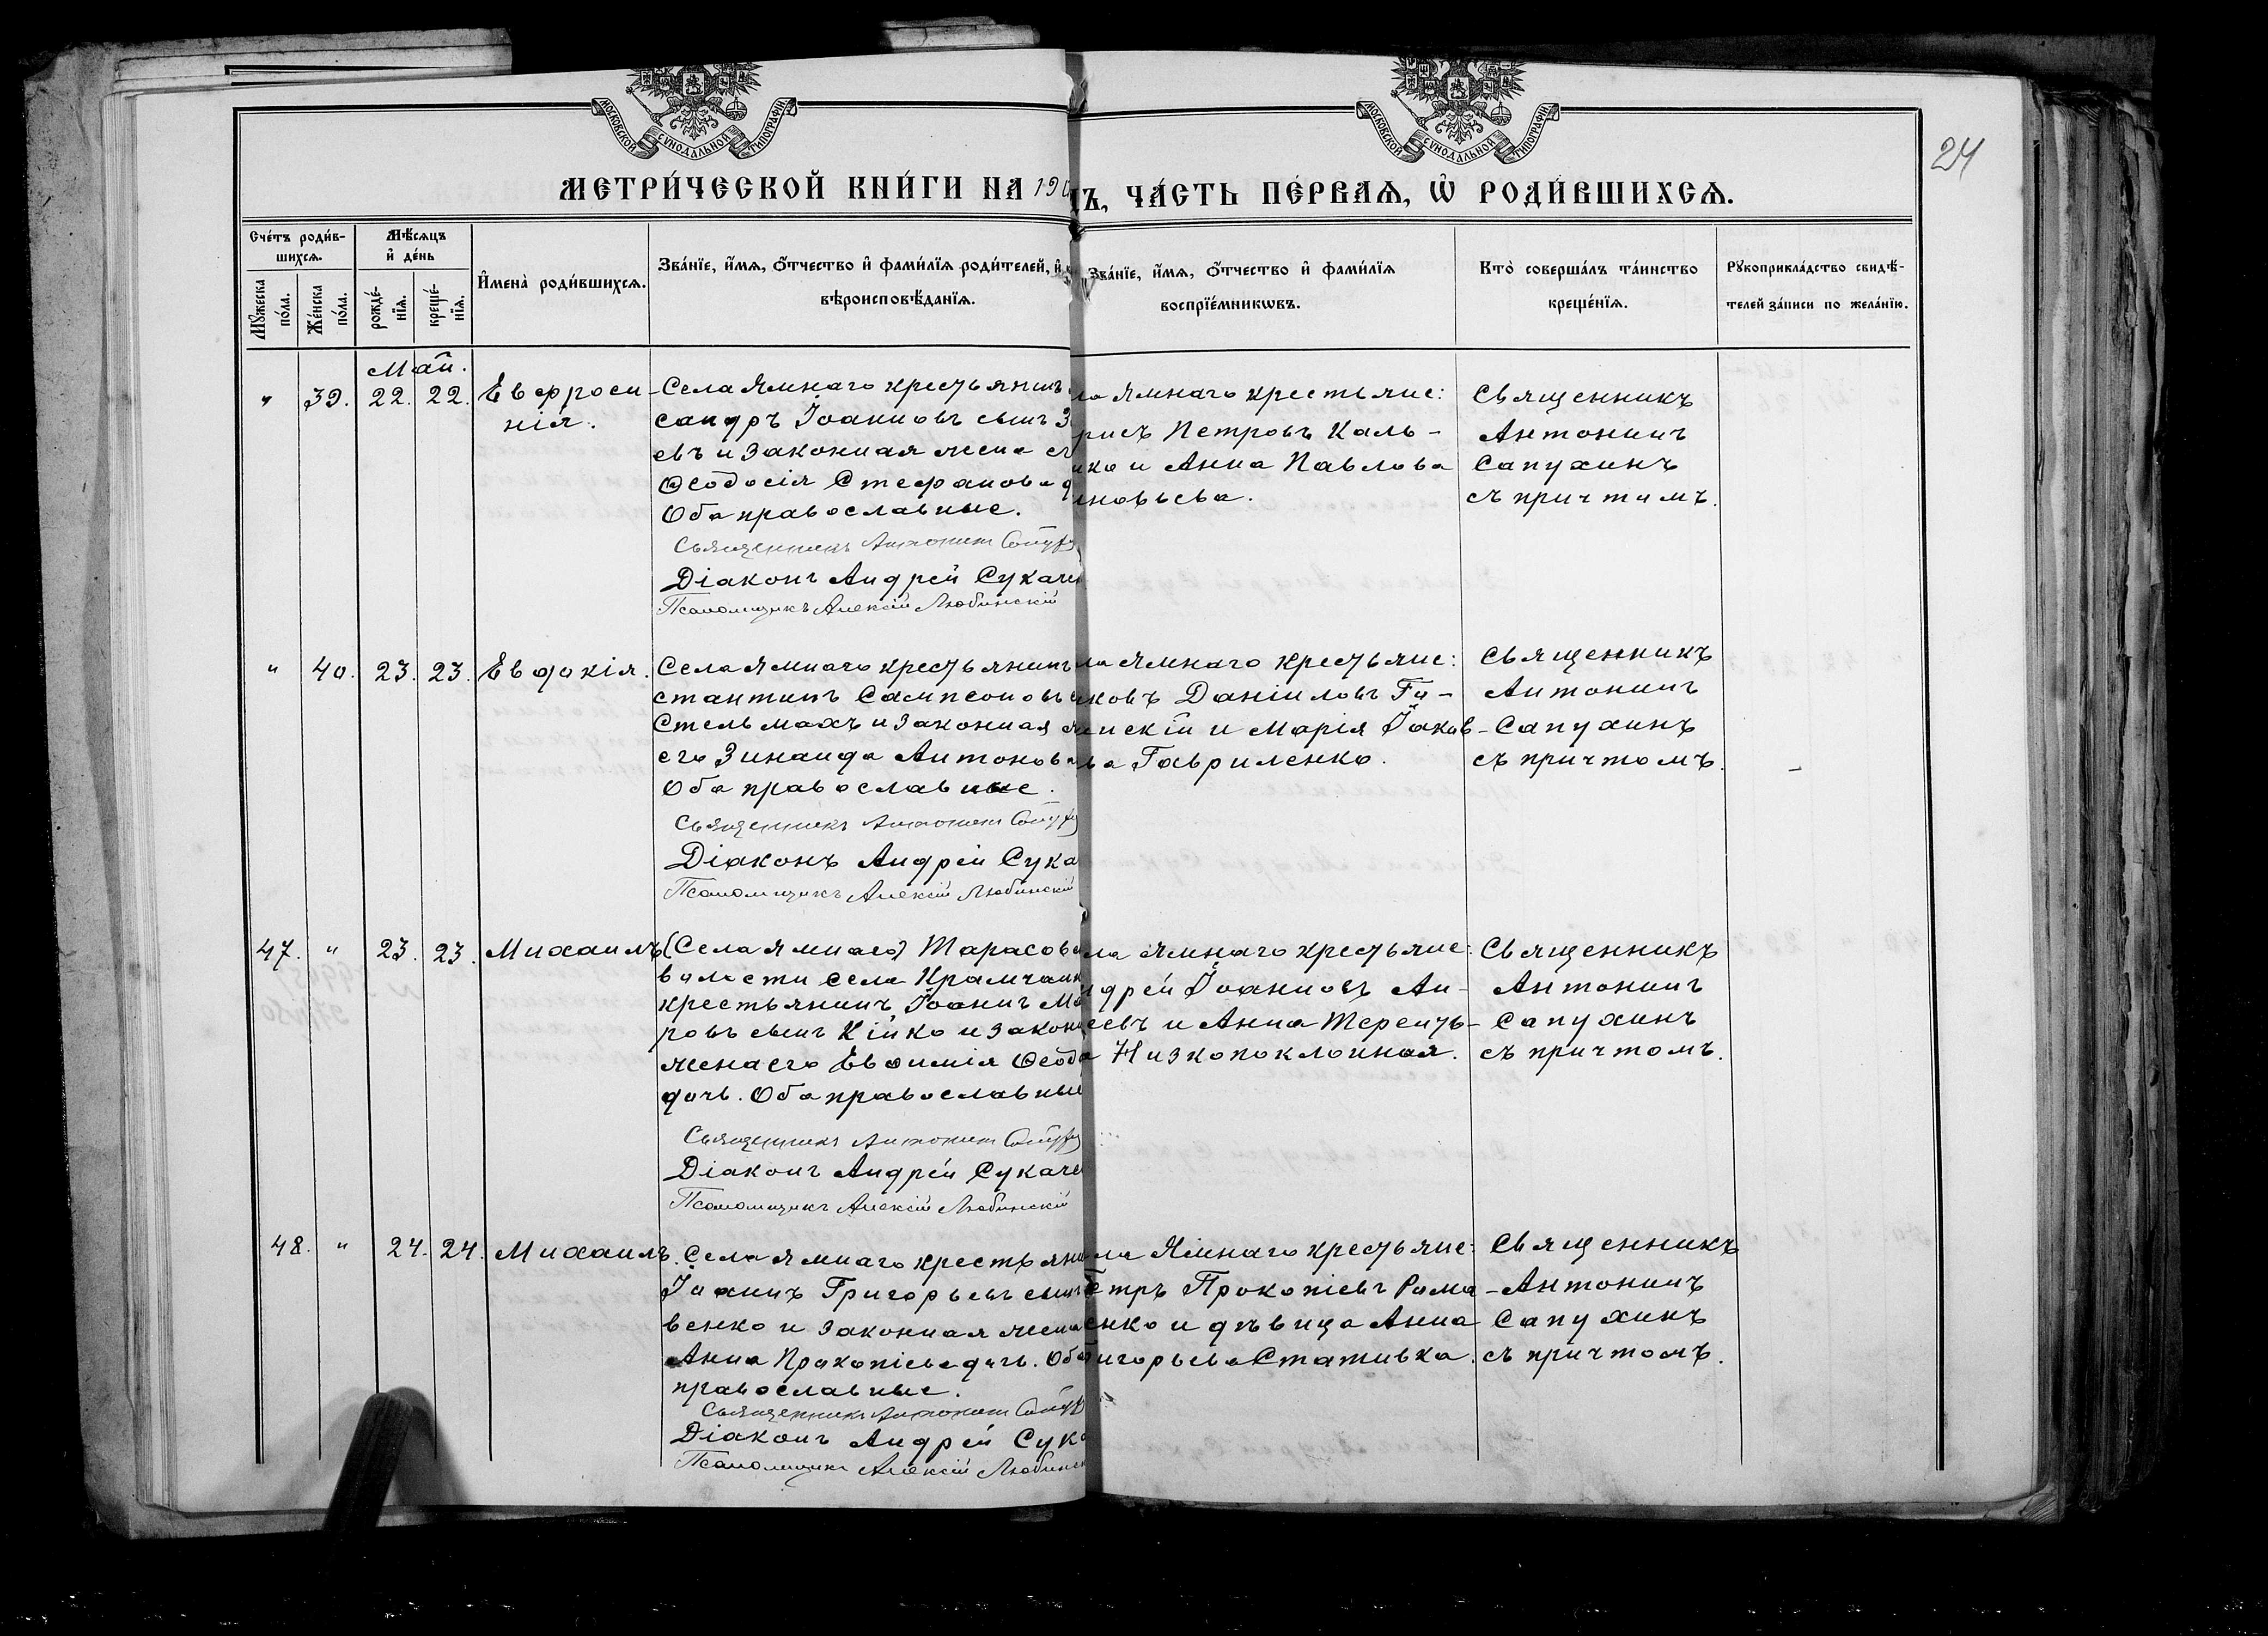 МОСКОВСКОЙ СѴНОДАЛЬНОЙ ТИПОГРАФІИ
МОСКОВСКОЙ СѴНОДАЛЬНОЙ ТИПОГРАФІИ
24
МЕТРИ́ЧЕСКОЙ КНИ́ГИ НА 190
Ъ, ЧА́СТЬ ПЕ́РВАѦ, Ѡ҆ РОДИ́ВШИХСѦ.
Сче́тъ роди́в-
шихсѧ.
Мꙋ́жеска по́ла.
Же́нска по́ла.
Мѣ́сѧцъ
и҆ де́нь
рожде́-
нїѧ.
креще́-
нїѧ.
И҆мена̀ роди́вшихсѧ.
Зва́нїе, и҆́мѧ, ѻ҆́тчество и҆ фами́лїѧ роди́телей, и҆
вѣроисповѣ́данїѧ.
Зва́нїе, и҆́мѧ, ѻ҆́тчество и҆ фами́лїѧ
воспрїе́мникѡвъ.
Кто̀ соверша́лъ та́инство
креще́нїѧ.
Рꙋкоприкла́дство свидѣ́-
телей за́писи по жела́нїю.
Май.
" 39. 22. 22. Евфроси-
нія.
Села Ямнаго крестьянинъ
сандръ Іоанновъ сынъ З
евъ и законная жена ег
Ѳеодосія Стефанова д
Оба православные.
Священникъ Антонин Сапух
Діаконъ Андрей Сукаче
Псаломщикъ Алексій Любинскій
ла Ямнаго крестьяне:
рисъ Петровъ Каль-
ико и Анна Павлова
новьева.
Священникъ
Антонинъ
Сапухинъ
съ причтомъ.
" 40. 23. 23. Евдокія.
Села Ямнаго крестьянинъ
стантинъ Сампсоновъ
Стельмахъ и законная ж
его Зинаида Антонова
Оба православные.
Священникъ Антонин Сапух
Діаконъ Андрей Сука
Псаломщикъ Алексій Любинскій
ла Ямнаго крестьяне:
ковъ Даніиловъ Го-
нскій и Марія Іаков-
ва Гавриленко.
Священникъ
Антонинъ
Сапухинъ
съ причтомъ.
47. " 23. 23. Михаилъ
(Села Ямнаго) Тарасов
волости села Крамчанк
крестьянинъ Іоаннъ Ма
ровъ сынъ Кійко и закон
жена его Евѳимія Ѳеодо
дочь. Оба православные
Священникъ Антонин Сапух
Діаконъ Андрей Сукаче
Псаломщикъ Алексій Любинскій
ла Ямнаго крестьяне:
дрей Іоанновъ Ан-
еевъ и Анна Теренть-
а Низкопоклонная.
Священникъ
Антонинъ
Сапухинъ
съ причтомъ.
48. " 24. 24. Михаилъ.
Села Ямнаго крестьяни
Іоаннъ Григорьевъ сынъ
венко и законная жена
Анна Прокопіева дочь. Оба
православные.
Священникъ Антонин Сапух
Діаконъ Андрей Сука
Псаломщикъ Алексій Любинск
ла Ямнаго крестьяне:
етръ Прокопіевъ Рома-
енко и дѣвица Анна
игорьева Стативка.
Священникъ
Антонинъ
Сапухинъ
съ причтомъ.